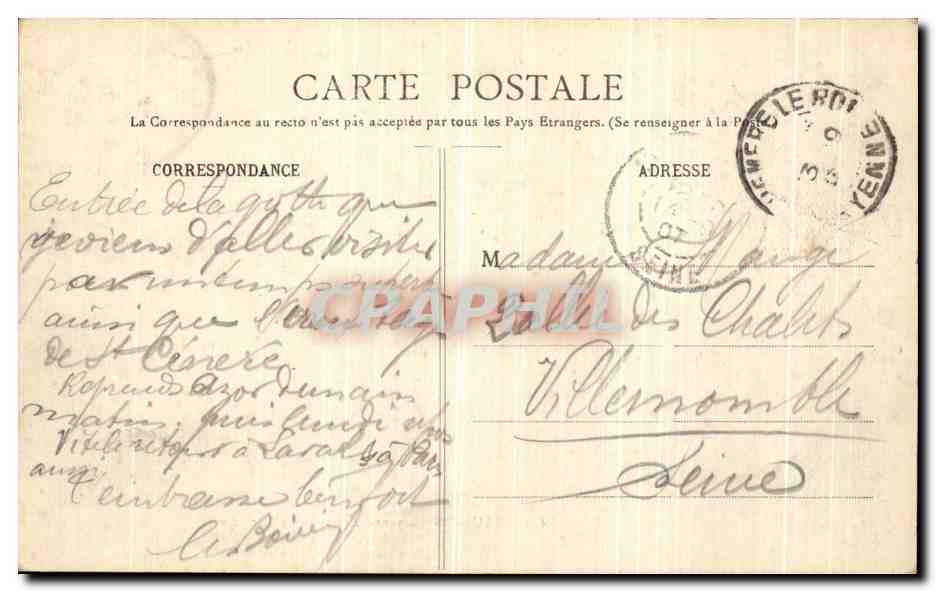 CARTE POSTALE
La Correspondance au recto n'est pas acceptée par tous les Pays Etrangers. (Se renseigner à la Poste)
CORRESPONDANCE
Entrée de la grotte que
je viens d'aller visiter
par un temps superbe
ainsi que l'ermitage
de St Céneré
Reprends Azor demain
matin, puis lundi
Vite retour à Laval & à Paris
aussi
T'embrasse bien fort
ADRESSE
Madame Mauge
Allée des Chalets
Villemomble
Seine
LE ROI
YENNE
SEINE
CPAPHIL